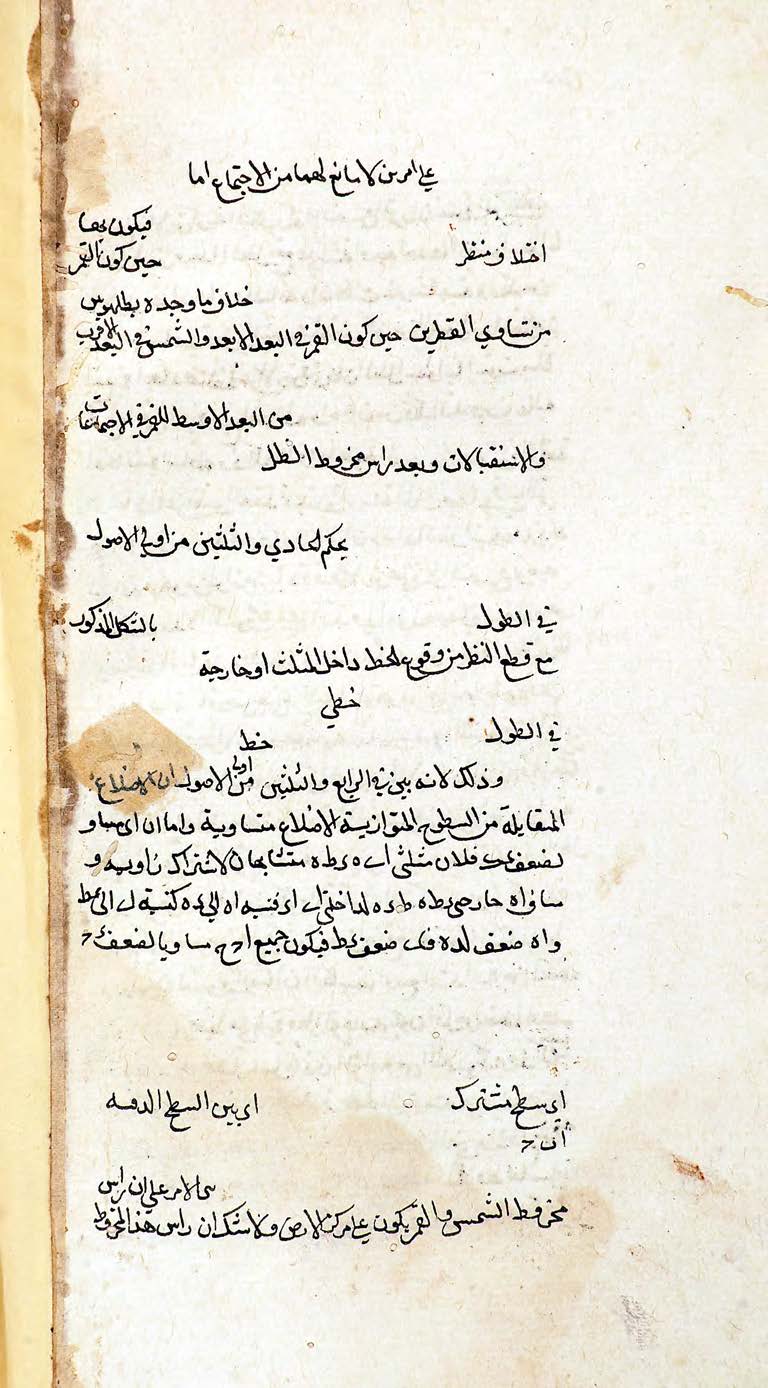 على امرين لا مانع لهما من الاجتماع اما
فيكون بها
اختلاف منظر
حين كون القمر
خلاف ما وجده بطلميوس
من تساوي القطرين حين كون القمر في البعد الابعد والشمس في البعد الاقرب
من البعد الاوسط للقمر في الاجتماعات
والاستقبالات وبعد راس مخروط الظل
بحكم الحادي والثلثين من اولى الاصول
في الطول
بالشكل المذكور
مع قطع النظر من وقوع الخط داخل المثلث او خارجه
خطي
في الطول
خط
وذلك لانه بين في الرابع والثلثين من اولى الاصول ان الاضلاع
المتقابلة من السطوح المتوازية الاضلاع متساوية واما ان
لضعف فلان مثلثي متشابهان لاشتراك زاوية و
لداخلتي فنسبة اه الى كنسبة الى
و اه ضعف ضعف فيكون جميع مساويا لضعف
اي سطح مشترك
اي بين السطح
الامر على ان راس
مخروط الشمس والقمر يكون على مركز الارض ولا شك ان راس هذا المخروط